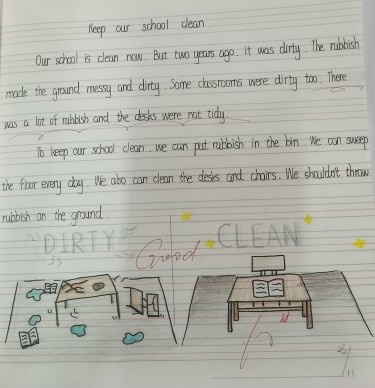 Keep our school clean
Our school is clean now. But two years ago, it was dirty. The rubbish
made the ground messy and dirty. Some classrooms were dirty too. There
was a lot of rubbish and the desks were not tidy.
To keep our school clean, we can put rubbish in the bin. We can sweep
the floor every day. We also can clean the desks and chairs. We shouldn't throw
rubbish on the ground.
DIRTY
CLEAN
Good